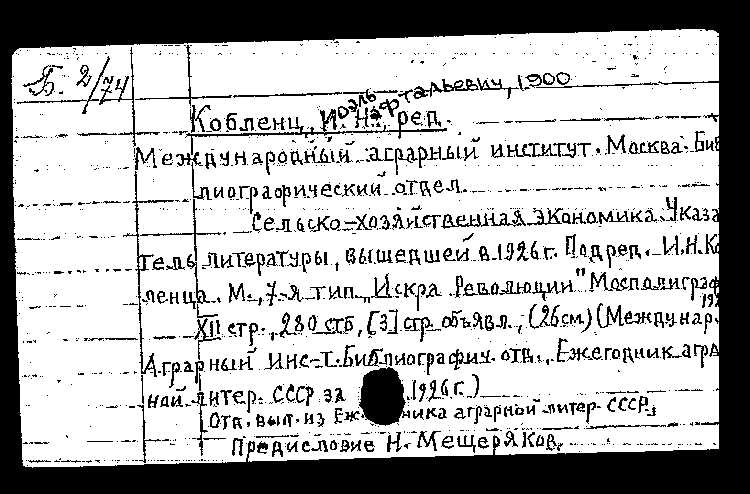 Б. 2/74
Иоэль Нафтальевич, 1900
Кобленц, И. Н., ред.
Международный аграрный институт. Москва. Биб
лиографический отдел.
Сельско-хозяйственная экономика. Указа
тель литературы, вышедшей в 1926 г. Под ред. И.Н. Ко
ленца. М., 7-я тип. „Искра Революции" Мосполиграф
192
XII стр., 280 стб, [3] стр. объявл., (26 см) (Междунар.
Аграрный Инс-т. Библиографич. отд., Ежегодник агра
ной литер. СССР за 1926 г.)
Отд. вып. из Еж ника аграрной литер. СССР.
Предисловие Н. Мещеряков.